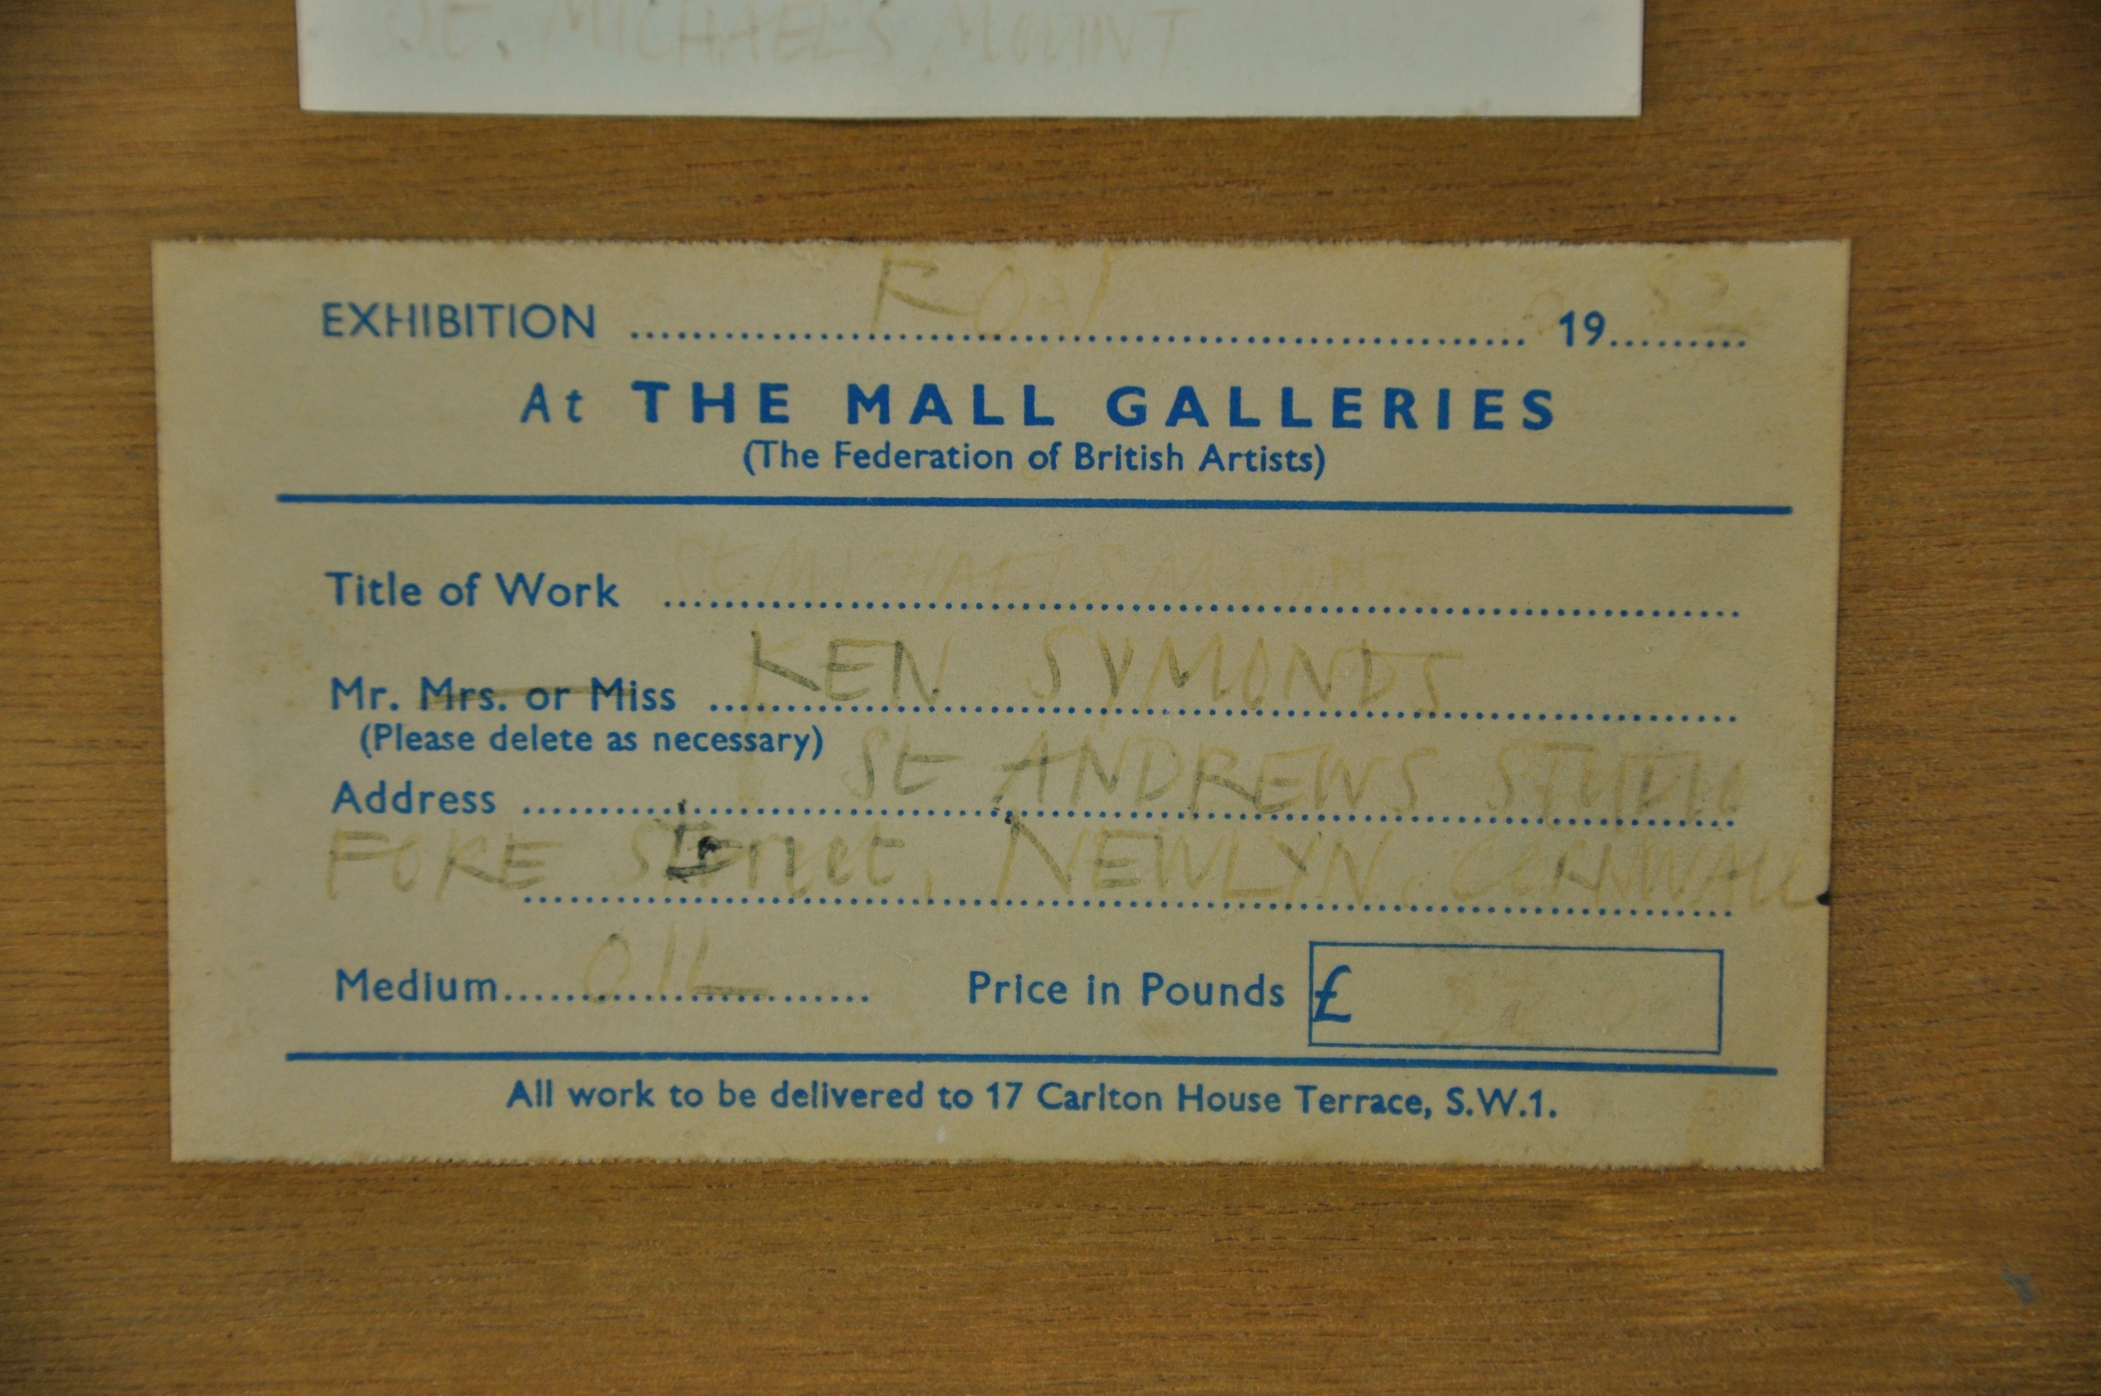 St. MICHAEL'S MOUNT
EXHIBITION ROI 19 82
At THE MALL GALLERIES
(The Federation of British Artists)
Title of Work St MICHAELS MOUNT
Mr. Mrs. or Miss KEN SYMONDS
(Please delete as necessary)
Address St ANDREWS STUDIO
FORE Street, NEWLYN. CORNWALL
Medium OIL Price in Pounds £
All work to be delivered to 17 Carlton House Terrace, S.W.1.